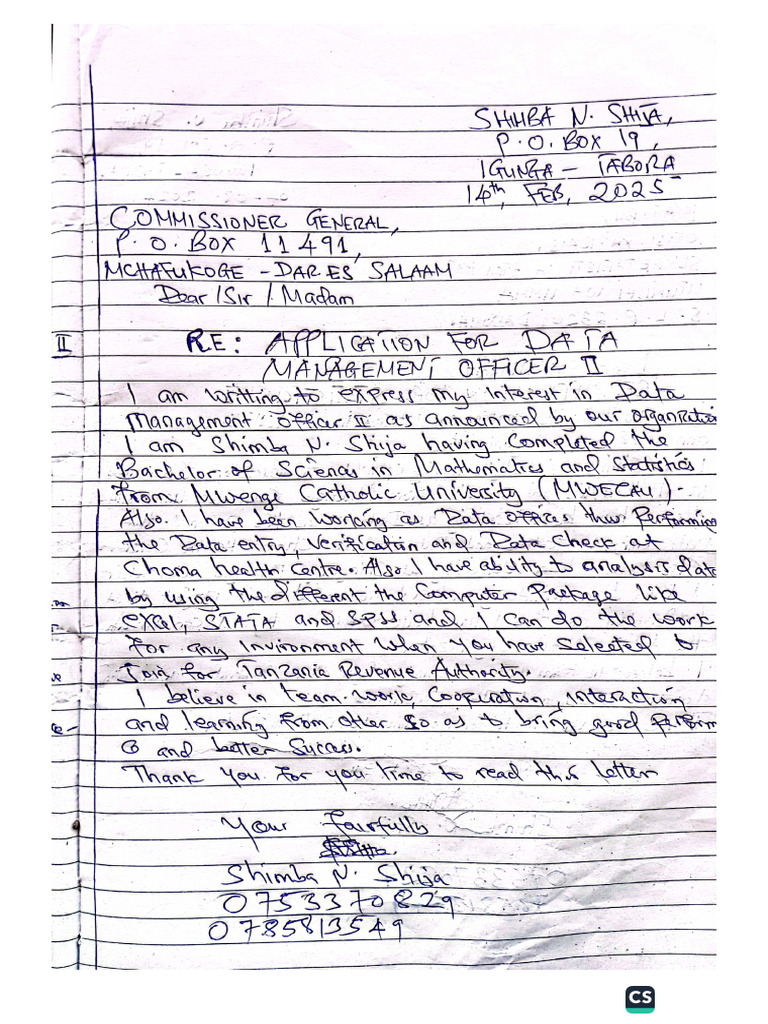 SHIMBA N. SHIJA,
P.O. BOX 19,
IGUNGA - TABORA
14th, FEB, 2025
COMMISSIONER GENERAL,
P.O. BOX 11491,
MCHAFUKOGE - DAR ES SALAAM
Dear /Sir / Madam
II RE: APPLICATION FOR DATA
MANAGEMENT OFFICER II
I am writting to express my interest in Data
Management officer II as announced by our organization
I am Shimba N. Shija having completed the
Bachelor of Sciences in Mathematics and Statistics
from Mwenge Catholic University (MWECAU)-
Also. I have been working as Data offices thus Performing
the Data entry, verification and Data Check at
Choma health Centre. Also I have ability to analysis data
by using the different the Computer Package like
EXCel, STATA and SPSS and I Can do the work
for any invironment when you have selected to
Join for Tanzania Revenue Authority.
I believe in team work, Cooperation, interaction
and learning from other so as to bring good perform
and better Success.
Thank you for you time to read this letter
Your Fairfully
Shimba N. Shija
0753370829
0785813549
CS